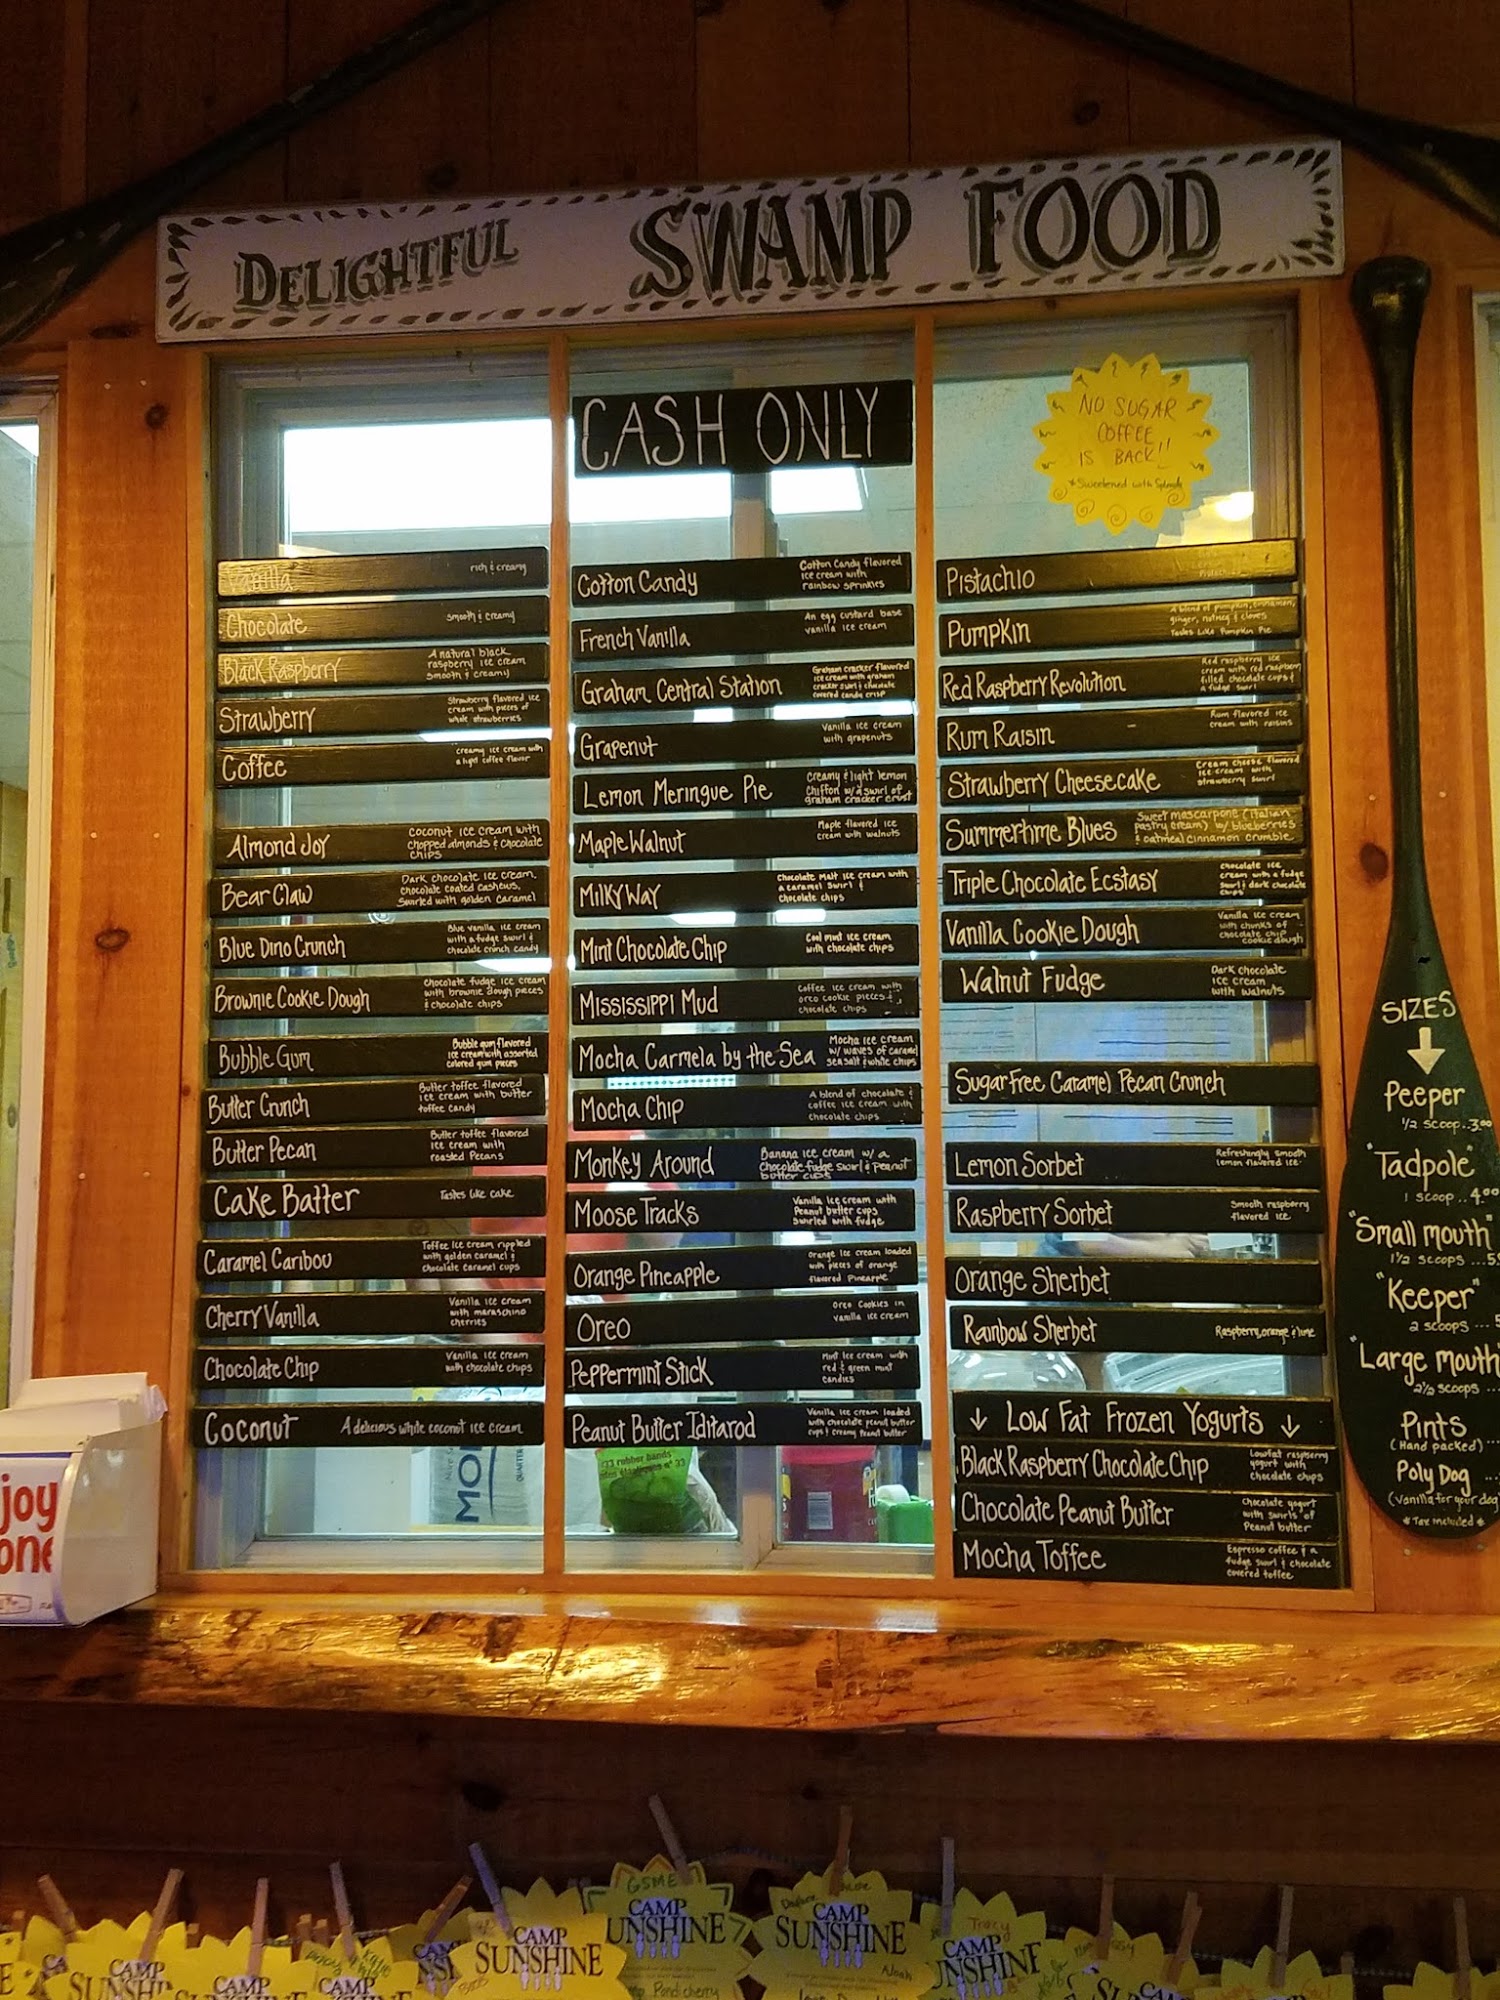 DELIGHTFUL SWAMP FOOD
CASH ONLY
NO SUGAR
COFFEE
IS BACK!!
*Sweetened with Splenda
Vanilla
rich & creamy
Chocolate
smooth & creamy
Black Raspberry
A natural black
raspberry ice cream
smooth & creamy
Strawberry
Strawberry flavored ice
cream with pieces of
whole strawberries
Coffee
creamy ice cream with
a light coffee flavor
Almond Joy
Coconut ice cream with
chopped almonds & chocolate
chips
Bear Claw
Dark chocolate ice cream,
chocolate coated cashews,
Swirled with golden caramel
Blue Dino Crunch
Blue vanilla ice cream
with a fudge swirl &
chocolate crunch candy
Brownie Cookie Dough
Chocolate fudge ice cream
with brownie dough pieces
& chocolate chips
Bubble Gum
Bubble gum flavored
ice cream with assorted
colored gum pieces
Butter Crunch
Butter toffee flavored
ice cream with butter
toffee candy
Butter Pecan
Butter toffee flavored
ice cream with
roasted Pecans
Cake Batter
Tastes like cake
Caramel Caribou
Toffee ice cream rippled
with golden caramel &
chocolate caramel cups
Cherry Vanilla
Vanilla ice cream
with maraschino
cherries
Chocolate Chip
Vanilla ice cream
with chocolate chips
Coconut
A delicious white coconut ice cream
Cotton Candy
Cotton Candy flavored
ice cream with
rainbow sprinkles
French Vanilla
An egg custard base
vanilla ice cream
Graham Central Station
Graham cracker flavored
ice cream with graham
cracker swirl & chocolate
covered candy crisp
Grapenut
Vanilla ice cream
with grapenuts
Lemon Meringue Pie
Creamy & light lemon
Chiffon w/ a swirl of
graham cracker crust
Maple Walnut
Maple flavored ice
cream with walnuts
Milky Way
Chocolate Malt ice cream with
a caramel swirl &
chocolate chips
Mint Chocolate Chip
Cool mint ice cream
with chocolate chips
Mississippi Mud
Coffee ice cream with
oreo cookie pieces &
chocolate chips
Mocha Carmela by the Sea
Mocha ice cream
w/ waves of caramel
sea salt & white chips
Mocha Chip
A blend of chocolate &
coffee ice cream with
chocolate chips
Monkey Around
Banana ice cream w/ a
Chocolate fudge swirl & peanut
butter cups
Moose Tracks
Vanilla Ice cream with
Peanut butter cups
swirled with fudge
Orange Pineapple
Orange Ice cream loaded
with pieces of orange
flavored Pineapple
Oreo
Oreo Cookies in
vanilla ice cream
Peppermint Stick
Mint Ice cream with
red & green mint
candies
Peanut Butter Iditarod
Vanilla ice cream loaded
with chocolate peanut butter
cups & creamy Peanut butter
Pistachio
Pumpkin
A blend of pumpkin, cinnamon,
ginger, nutmeg & cloves
Tastes Like Pumpkin Pie
Red Raspberry Revolution
Red raspberry ice
cream with red raspberry
filled chocolate cups &
a fudge swirl
Rum Raisin
Rum flavored ice
cream with raisins
Strawberry Cheesecake
Cream cheese flavored
ice cream with
strawberry swirl
Summertime Blues
Sweet mascarpone (Italian
pastry cream) w/ blueberries
& oatmeal cinnamon crumble
Triple Chocolate Ecstasy
chocolate ice
cream with a fudge
swirl & dark chocolate
chips
Vanilla Cookie Dough
Vanilla ice cream
with chunks of
chocolate chip
cookie dough
Walnut Fudge
Dark chocolate
ice cream
with walnuts
Sugar Free Caramel Pecan Crunch
Lemon Sorbet
Refreshingly smooth
lemon flavored ice
Raspberry Sorbet
Smooth raspberry
flavored ice
Orange Sherbet
Rainbow Sherbet
Raspberry, orange & lime
↓ Low Fat Frozen Yogurts ↓
Black Raspberry Chocolate Chip
Lowfat raspberry
yogurt with
chocolate chips
Chocolate Peanut Butter
Chocolate yogurt
with swirls of
Peanut butter
Mocha Toffee
Espresso coffee & a
fudge swirl & chocolate
covered toffee
SIZES
Peeper
1/2 scoop..3.00
"Tadpole"
1 scoop..4.00
"Small mouth"
1 1/2 scoops ...5
"Keeper"
2 scoops ...5
"Large mouth"
2 1/2 scoops ....
Pints
(Hand packed)....
Poly Dog
(vanilla for your dog)
*Tax included*
33 rubber bands
njoy
one
GSME
CAMP
SUNSHINE
CAMP
SUNSHINE
Noah
Tracy
CAMP
SUNSHINE
CAMP
SUNSHINE
CAMP
SUNSHINE
CAMP
SUNSHINE
CAMP